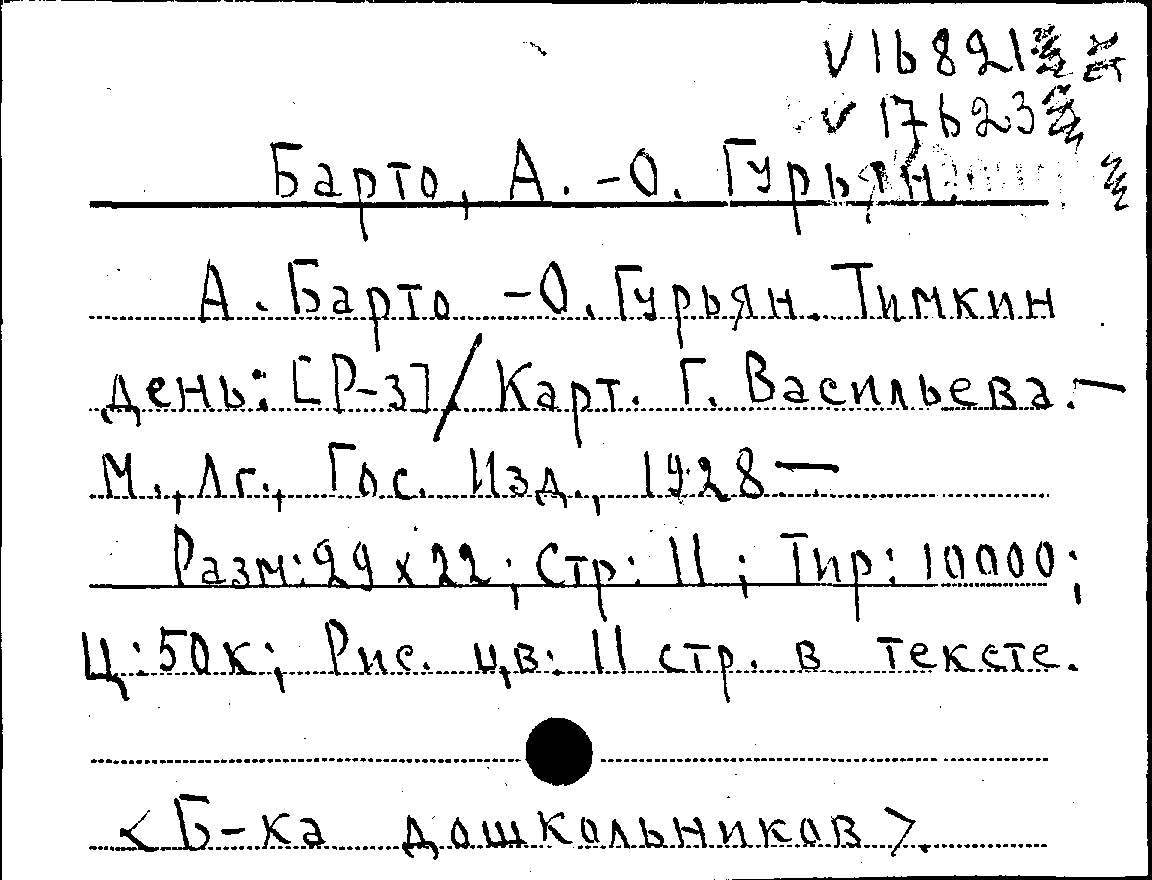 V 16821
V 17623
Барто, А. -О. Гурьян.
А. Барто -О. Гурьян. Тимкин
день: [Р-з] / Карт. Г. Васильева. —
М., Лг., Гос. Изд., 1928 —
Разм: 29 х 22; Стр: 11; Тир: 10000;
Ц: 50 к; Рис. цв: 11 стр. в тексте.
<Б-ка дошкольников>.